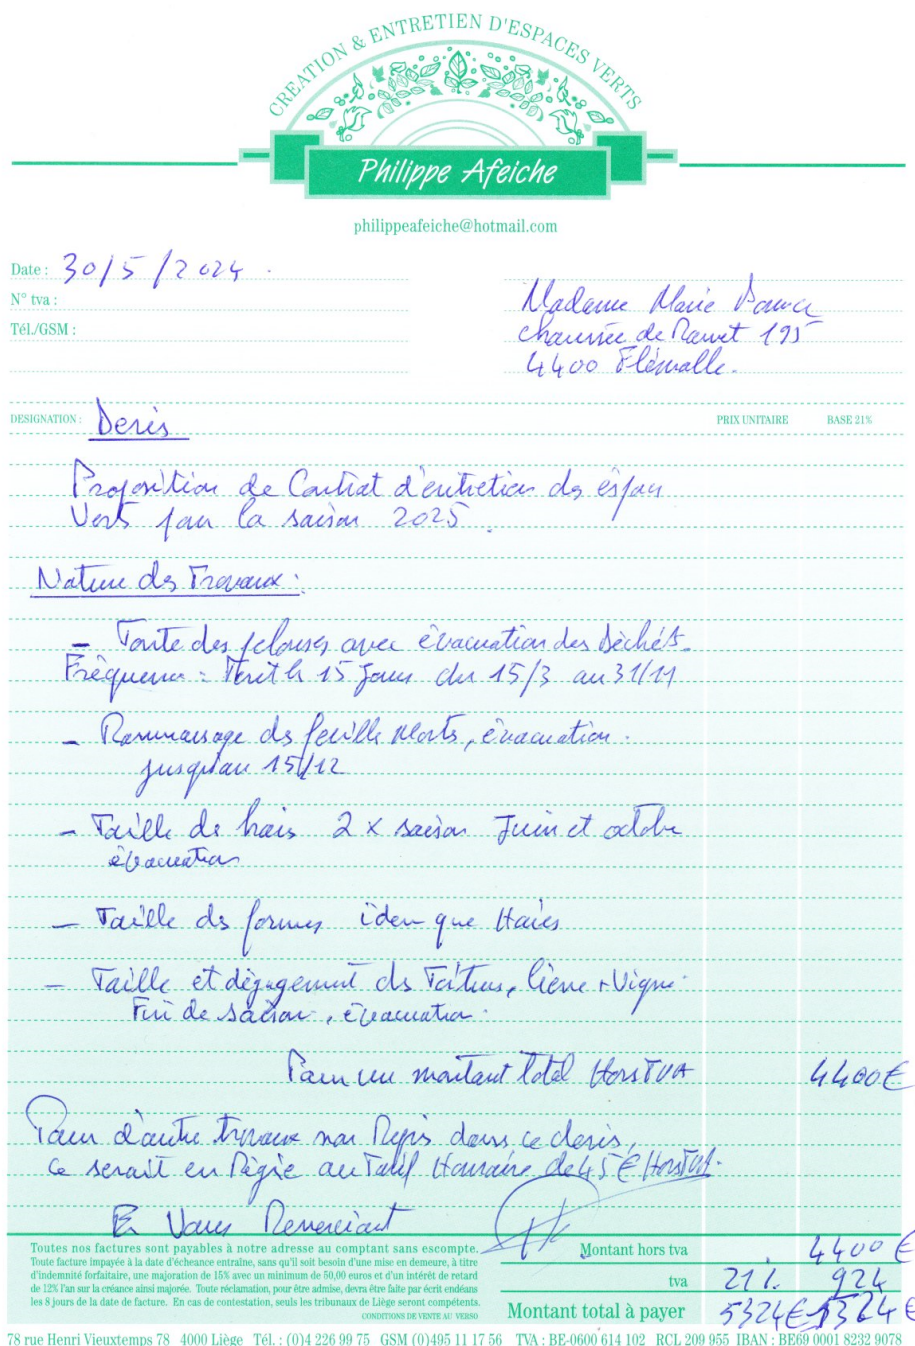 CREATION & ENTRETIEN D'ESPACES VERTS
Philippe Afeiche
philippeafeiche@hotmail.com
Date : 30/5/2024.
N° tva :
Tél./GSM :
Madame Marie
chaussée de Ramet 195
4400 Flémalle.
DESIGNATION : Devis
PRIX UNITAIRE BASE 21%
Proposition de Contrat d'entretien des éspaces
Verts pour la saison 2025.
Nature des Travaux :
- Tonte des pelouses avec évacuation des Déchéts.
Fréquence : 15 Jours du 15/3 au 31/11
- Rammassage des feuille Morts, évacuation.
jusqu'au 15/12
- Taille de haies 2 x saison Juin et octobre
évacuation
- Taille des formes idem que Haies
- Taille et dégagement des Toitures, lierre + Vigne.
Fin de saison, évacuation.
Pour un montant total Hors TVA 4400€
Pour d'autre travaux non Repris dans ce devis,
ce serait en Régie au Tarif Horraire de 45 € Hors TVA.
En Vous Remerciant
Toutes nos factures sont payables à notre adresse au comptant sans escompte.
Toute facture impayée à la date d'écheance entraîne, sans qu'il soit besoin d'une mise en demeure, à titre
d'indemnité forfaitaire, une majoration de 15% avec un minimum de 50,00 euros et d'un intérêt de retard
de 12% l'an sur la créance ainsi majorée. Toute réclamation, pour être admise, devra être faite par écrit endéans
les 8 jours de la date de facture. En cas de contestation, seuls les tribunaux de Liège seront compétents.
CONDITIONS DE VENTE AU VERSO
Montant hors tva 4400 €
tva 21%. 924
Montant total à payer 5324€ 5324 €
78 rue Henri Vieuxtemps 78 4000 Liège Tél. : (0)4 226 99 75 GSM (0)495 11 17 56 TVA : BE-0600 614 102 RCL 209 955 IBAN : BE69 0001 8232 9078